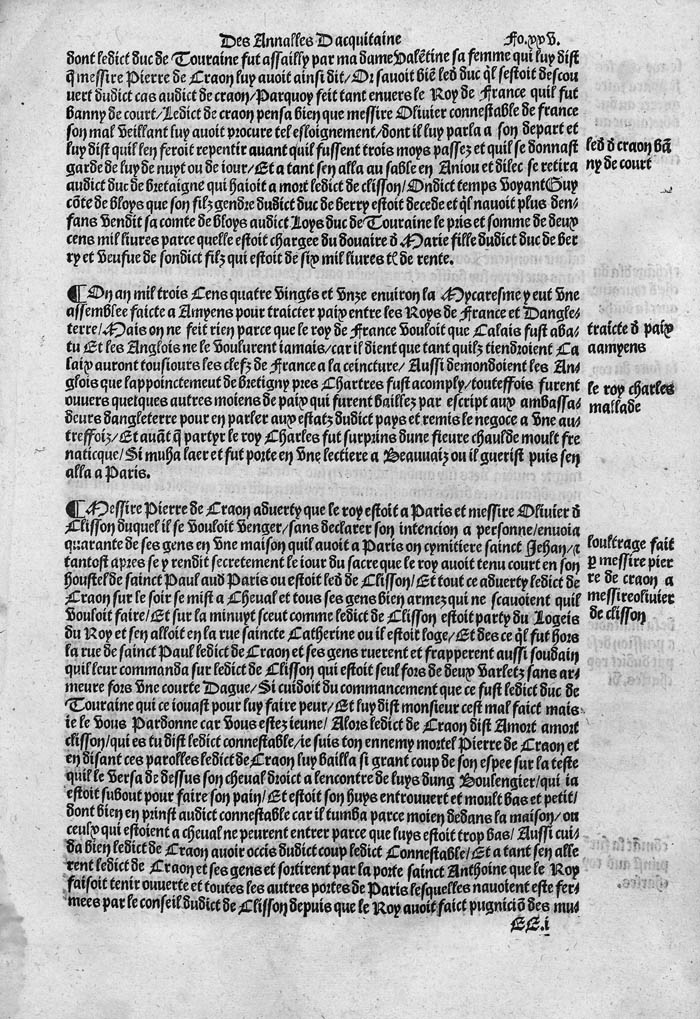 Des Annalles Dacquitaine Fo.xxv.
dont ledict duc de Touraine fut assailly par ma dame Valẽtine sa femme qui luy dist
q̃ messire Pierre de Craon luy avoit ainsi dit/Or savoit biẽ led duc q̃l sestoit descou
vert dudict cas audict de craon/Parquoy feit tant envers le Roy de France quil fut
banny de court/Ledict de craon pensa bien que messire Olivier connestable de france
son mal veillant luy avoit procure tel esloignement/dont il luy parla a son depart et
luy dist quil len feroit repentir avant quil fussent trois moys passez et quil se donnast
garde de luy de nuyt ou de iour/Et a tant sen alla au sable en Aniou et dilec se retira
audict duc de bretaigne qui haioit a mort ledict de clisson/Ondict temps voyant Guy
cõte de bloys que son filz gendre dudict duc de berry estoit decede et q̃l navoit plus den-
fans vendit sa comte de bloys audict Loys duc de Touraine le pris et somme de deux
cens mil livres parce quelle estoit chargee du douaire d̃ Marie fille dudict duc de ber
ry et veufue de sondict filz qui estoit de six mil livres tl̃ de rente.
led d̃ craon bã
ny de court
¶ On an mil trois Cens quatre vingts et vnze environ la Mycaresme y eut vne
assemblee faicte a Amyens pour traicter paix entre les Roys de France et Dangle-
terre/Mais on ne feit rien parce que le roy de France vouloit que Calais fust aba-
tu Et les Anglois ne le voulurent iamais/car il dient que tant quilz tiendroient Ca
laix auront tousiours les clefz de France a la ceincture/Aussi demondoient les An-
glois que lappoinctement de bretigny pres Chartres fust acomply/touteffois furent
ouvers quelques autres moiens de paix qui furent baillez par escript aux ambassa-
deurs dangleterre pour en parler aux estatz dudict pays et remis le negoce a vne au-
treffoiz/Et auãt q̃ partyr le roy Charles fut surprins dune fieure chaulde moult fre
naticque/Si muha laer et fut porte en vne lectiere a Beauvaiz ou il guerist puis sen
alla a Paris.
traicte d̃ paix
a amyens
le roy charles
mallade
¶ Messire Pierre de Craon adverty que le roy estoit a Paris et messire Olivier d̃
Clisson duquel il se vouloit venger/sans declarer son intencion a personne/envoia
quarante de ses gens en vne maison quil avoit a Paris on cymitiere sainct Jehan/⁊
tantost apres se y rendit secretement le iour du sacre que le roy avoit tenu court en son
houstel de sainct Paul aud Paris ou estoit led de Clisson/Et tout ce adverty ledict de
Craon sur le soir se mist a Cheval et tous ses gens bien armez qui ne scavoient quil
vouloit faire/Et sur la minuyt sceut comme ledict de Clisson estoit party du Logeis
du Roy et sen alloit en la rue saincte Catherine ou il estoit loge/Et des ce q̃l fut hors
la rue de sainct Paul ledict de Craon et ses gens ruerent et frapperent aussi soudain
quil leur commanda sur ledict de Clisson qui estoit seul fors de deux varletz sans ar-
meure fors vne courte Dague/Si cuidoit du commancement que ce fust ledict duc de
Touraine qui ce iouast pour luy faire peur/Et luy dist monsieur cest mal faict mais
ie le vous Pardonne car vous estez ieune/Alors ledict de Craon dist Amort amort
clisson/qui es tu dist ledict connestable/ie suis ton ennemy mortel Pierre de Craon et
en disant ces parolles ledict de Craon luy bailla si grant coup de son espee sur la teste
quil le versa de dessus son cheval droict a lencontre de luys dung Boulengier/qui ia
estoit subout pour faire son pain/Et estoit son huys entrouvert et moult bas et petit/
dont bien en prinst audict connestable car il tumba parce moien dedans la maison/ou
ceulx qui estoient a cheval ne peurent entrer parce que luys estoit trop bas/Aussi cui-
da bien ledict de Craon avoir occis dudict coup ledict Connestable/Et a tant sen alle
rent ledict de Craon et ses gens et sortirent par la porte sainct Anthoine que le Roy
faisoit tenir ouverte et toutes les autres portes de Paris lesquelles navoient este fer-
mees par le conseil dudict de Clisson depuis que le Roy avoit faict pugniciõ des mu-
loultrage fait
p messire pier
re de craon a
messire olivier
de clisson
EE.i